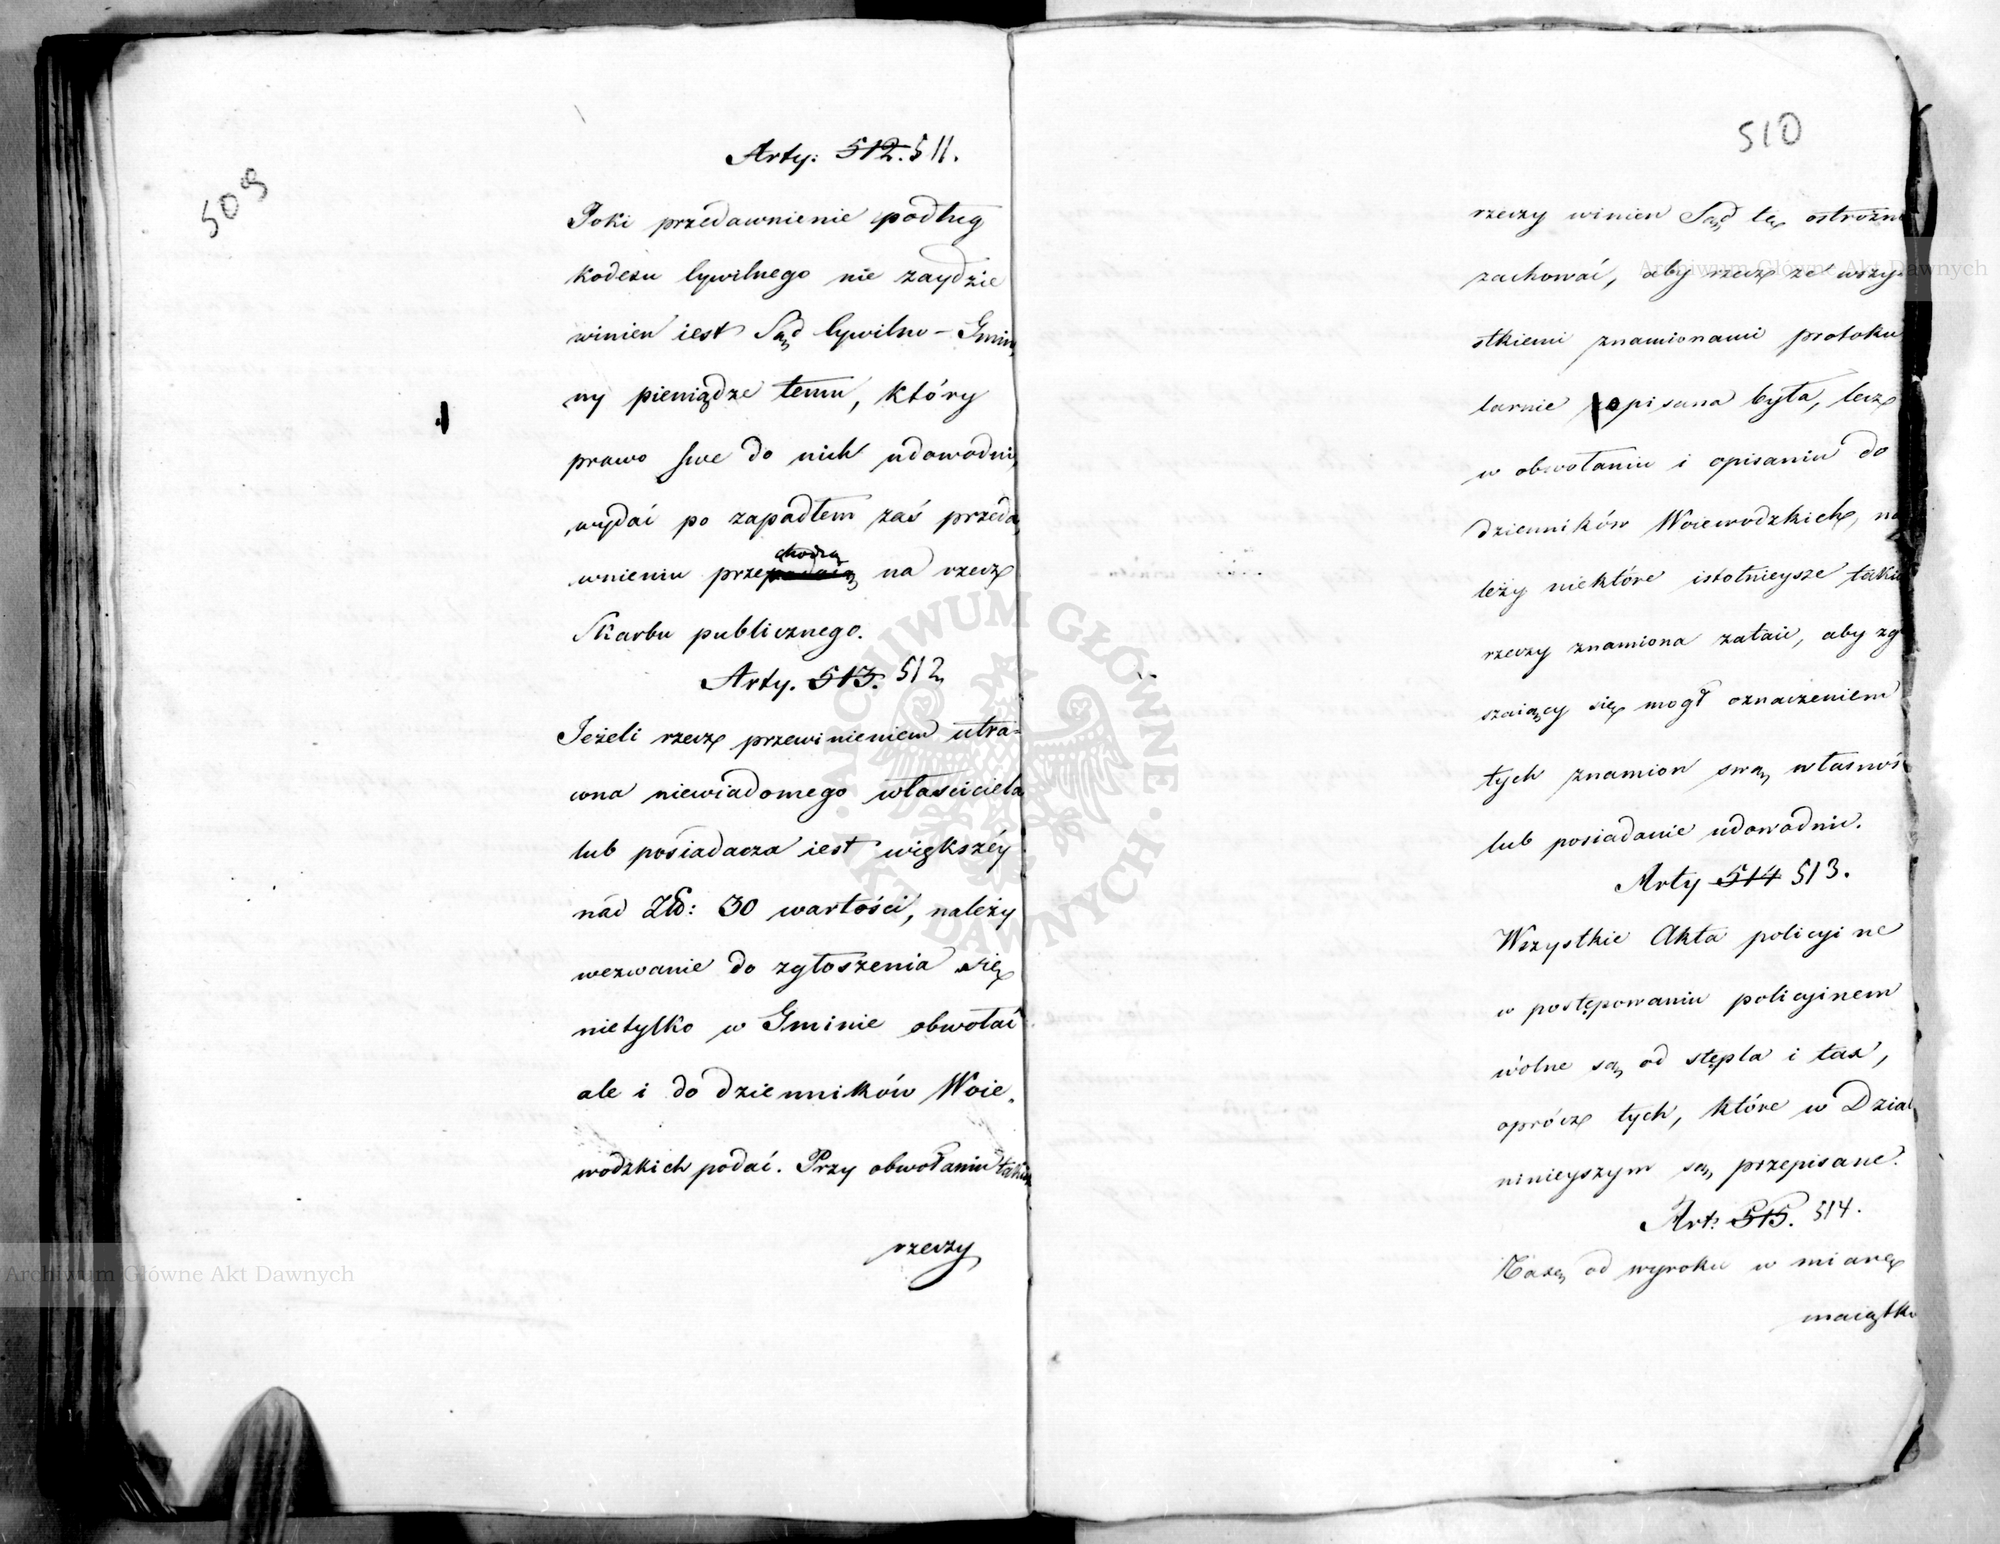 509
Arty: 512. 511.
Poki przedawnienie podług
kodexu Cywilnego nie zaydzie
winien iest Sąd Cywilno-Gmin
ny pieniądze temu, który
prawo swe do nich udowodni,
wydać po zapadłem zaś przeda
wnieniu przechodzą na rzecz
Skarbu publicznego.
Arty. 513. 512
Jeżeli rzecz przewinieniem utra-
cona niewiadomego właściciela
lub posiadacza iest większéy
nad Złb: 30 wartości, należy
wezwanie do zgłoszenia się
nietylko w Gminie obwołać
ale i do dzienników Woie-
wodzkich podać. Przy obwołaniu takim
rzeczy
510
rzeczy winien Sąd tę ostrożn
zachować, aby rzecz ze wszy-
stkiemi znamionami protoku
larnie opisana była, lecz
w obwołaniu i opisaniu do
dzienników Woiewodzkich, na
leży niektóre istotnieysze takie
rzeczy znamiona zataić, aby zg
szaiący się mogł oznaczeniem
tych znamion swą własnoś
lub posiadanie udowodnić.
Arty 514 513.
Wszystkie Akta policyine
w postępowaniu policyinem
wolne są od stępla i tax,
oprócz tych, które w Dzial
ninieyszym są przepisane.
Art: 515. 514.
Taxę od wyroku w miarę
maiątku
ARCHIWUM GŁÓWNE AKT DAWNYCH
Archiwum Główne Akt Dawnych
Archiwum Główne Akt Dawnych